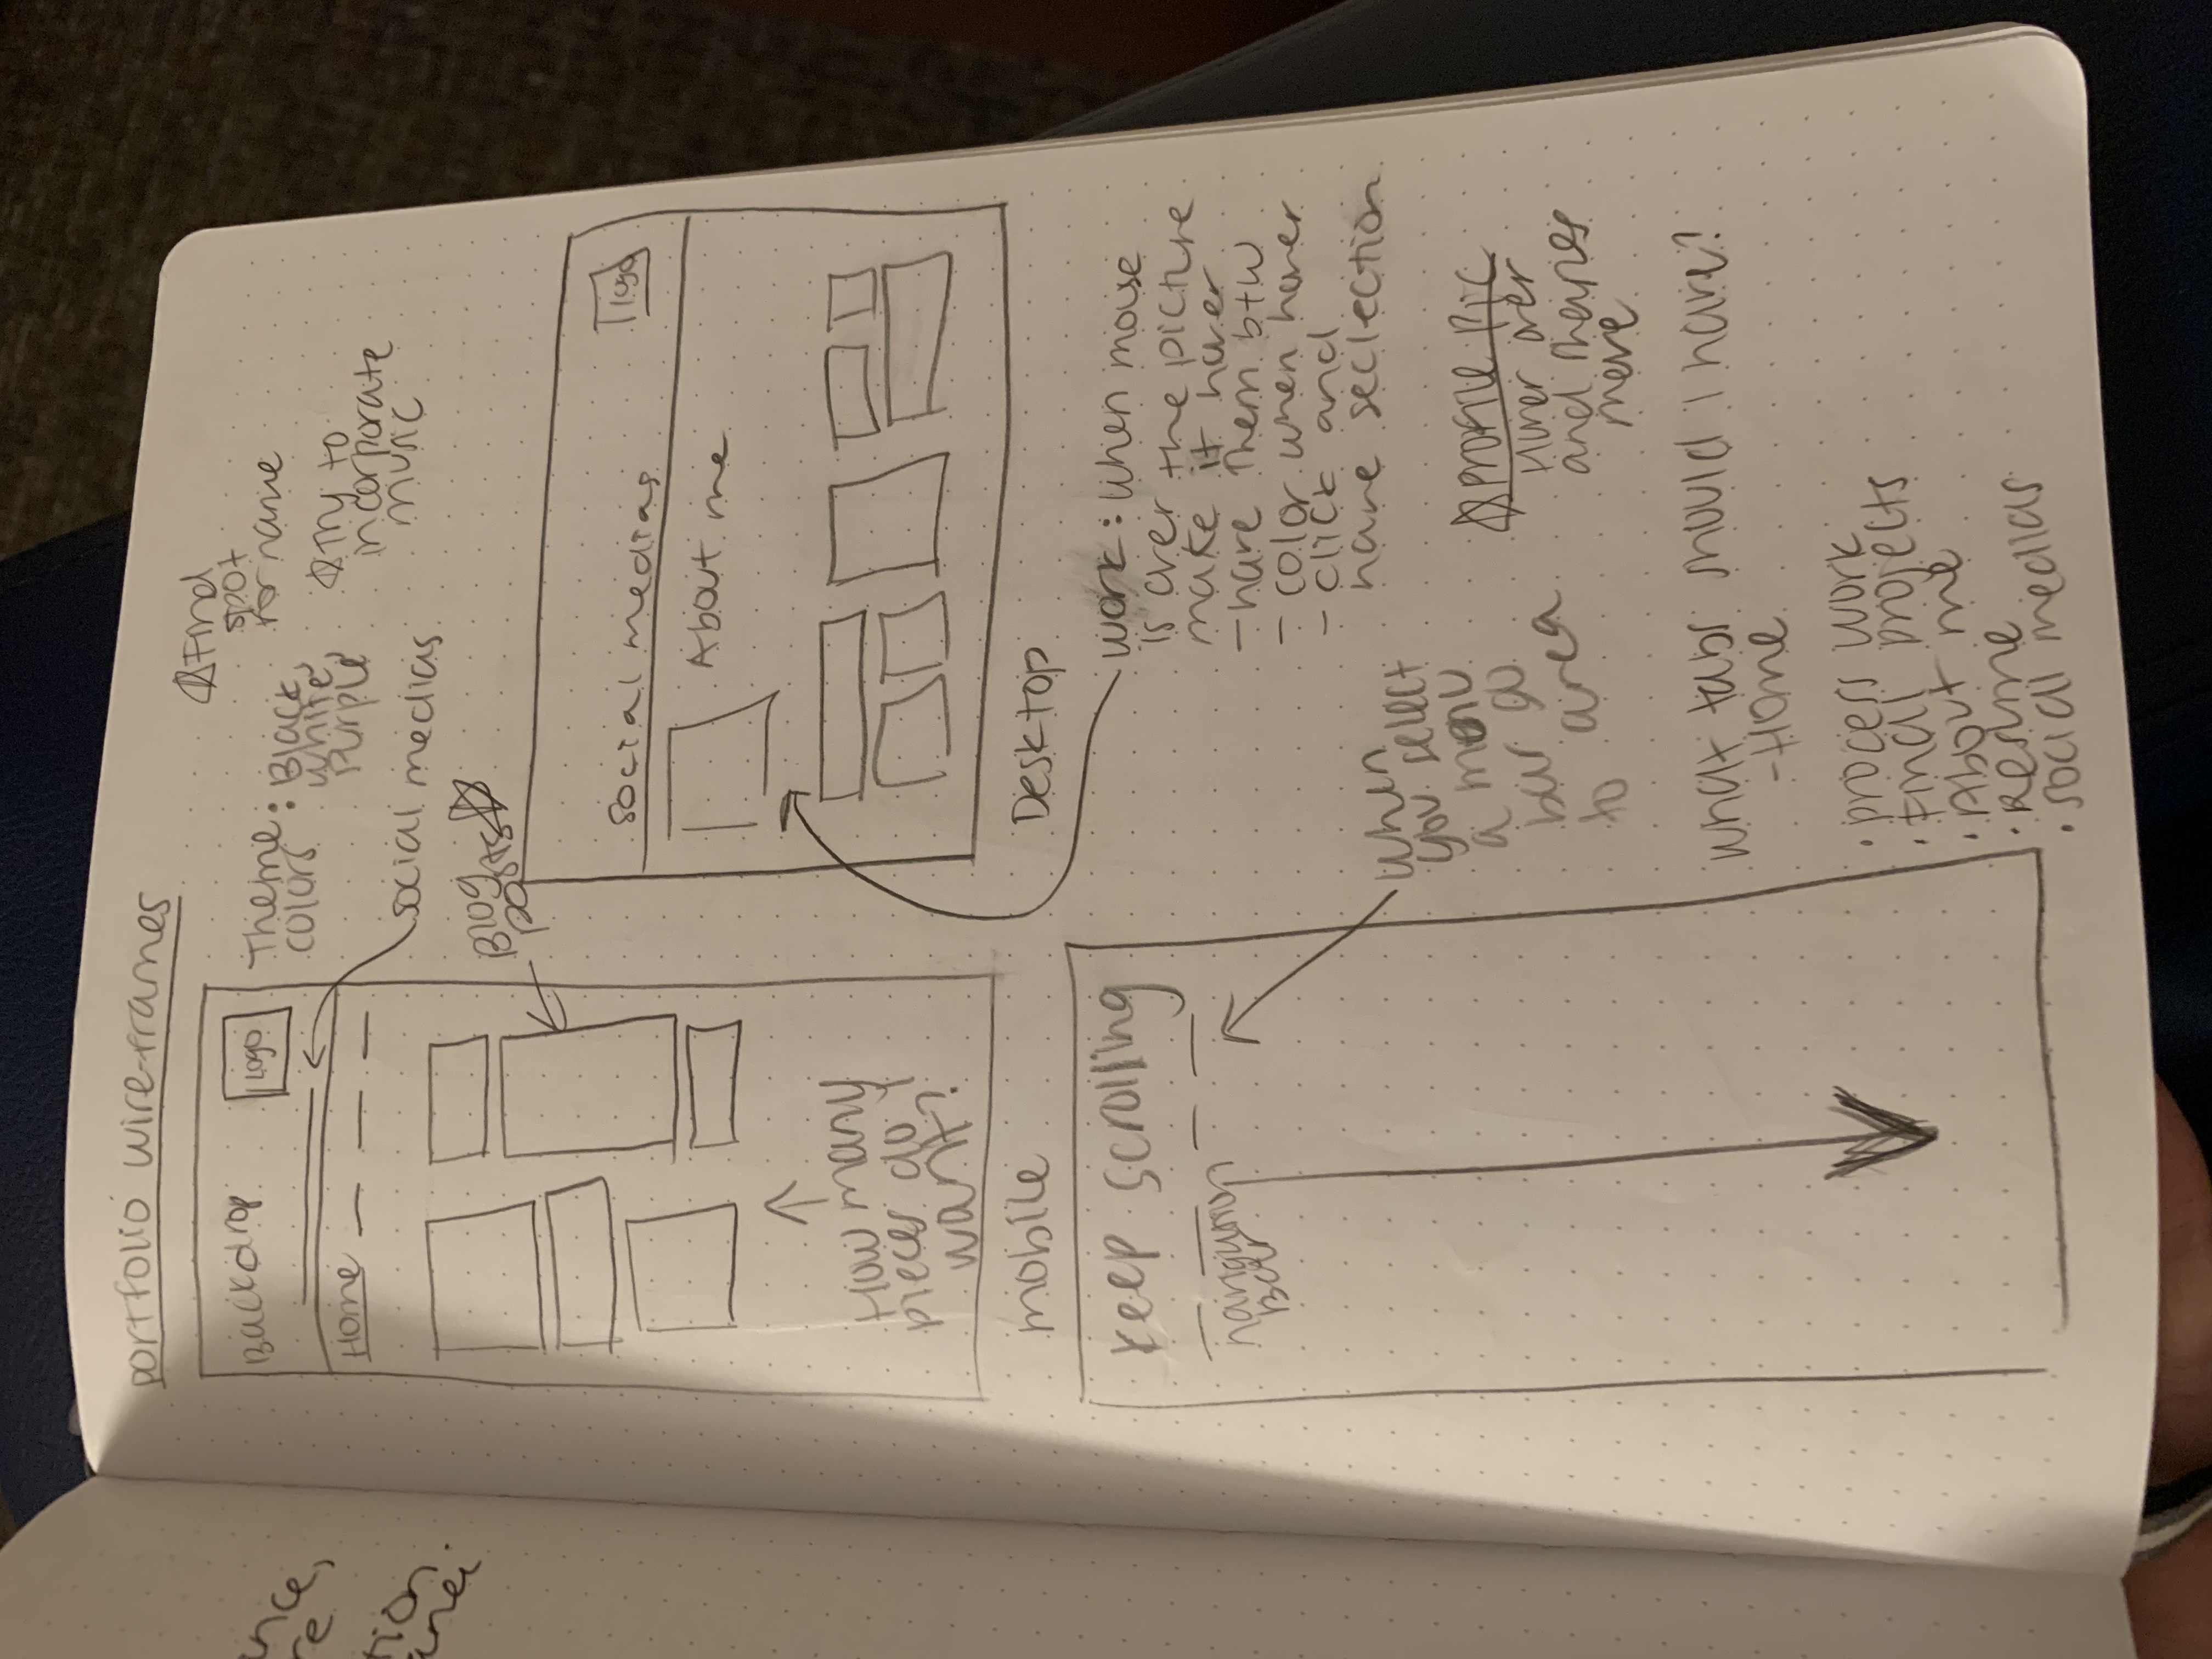 portfolio wire-frames
Backdrop
Logo
Home
Theme :
colors : Black,
white,
Purple
Find
spot
for name
Try to
incorporate
music
social medias
Blog
posts
How many
pieces do I
want?
mobile
social medias
logo
About me
Desktop
work: when mouse
is over the picture
make it hover
- have them b+w
- color when hover
- click and
have seclection
keep scrolling
Bar
when
you select
a menu
bar go
to area
profile pic
Hover over
and shapes
move
what tabs should I have?
- Home
• process work
• Final projects
• About me
• Resume
• social medias
ance,
re
tion